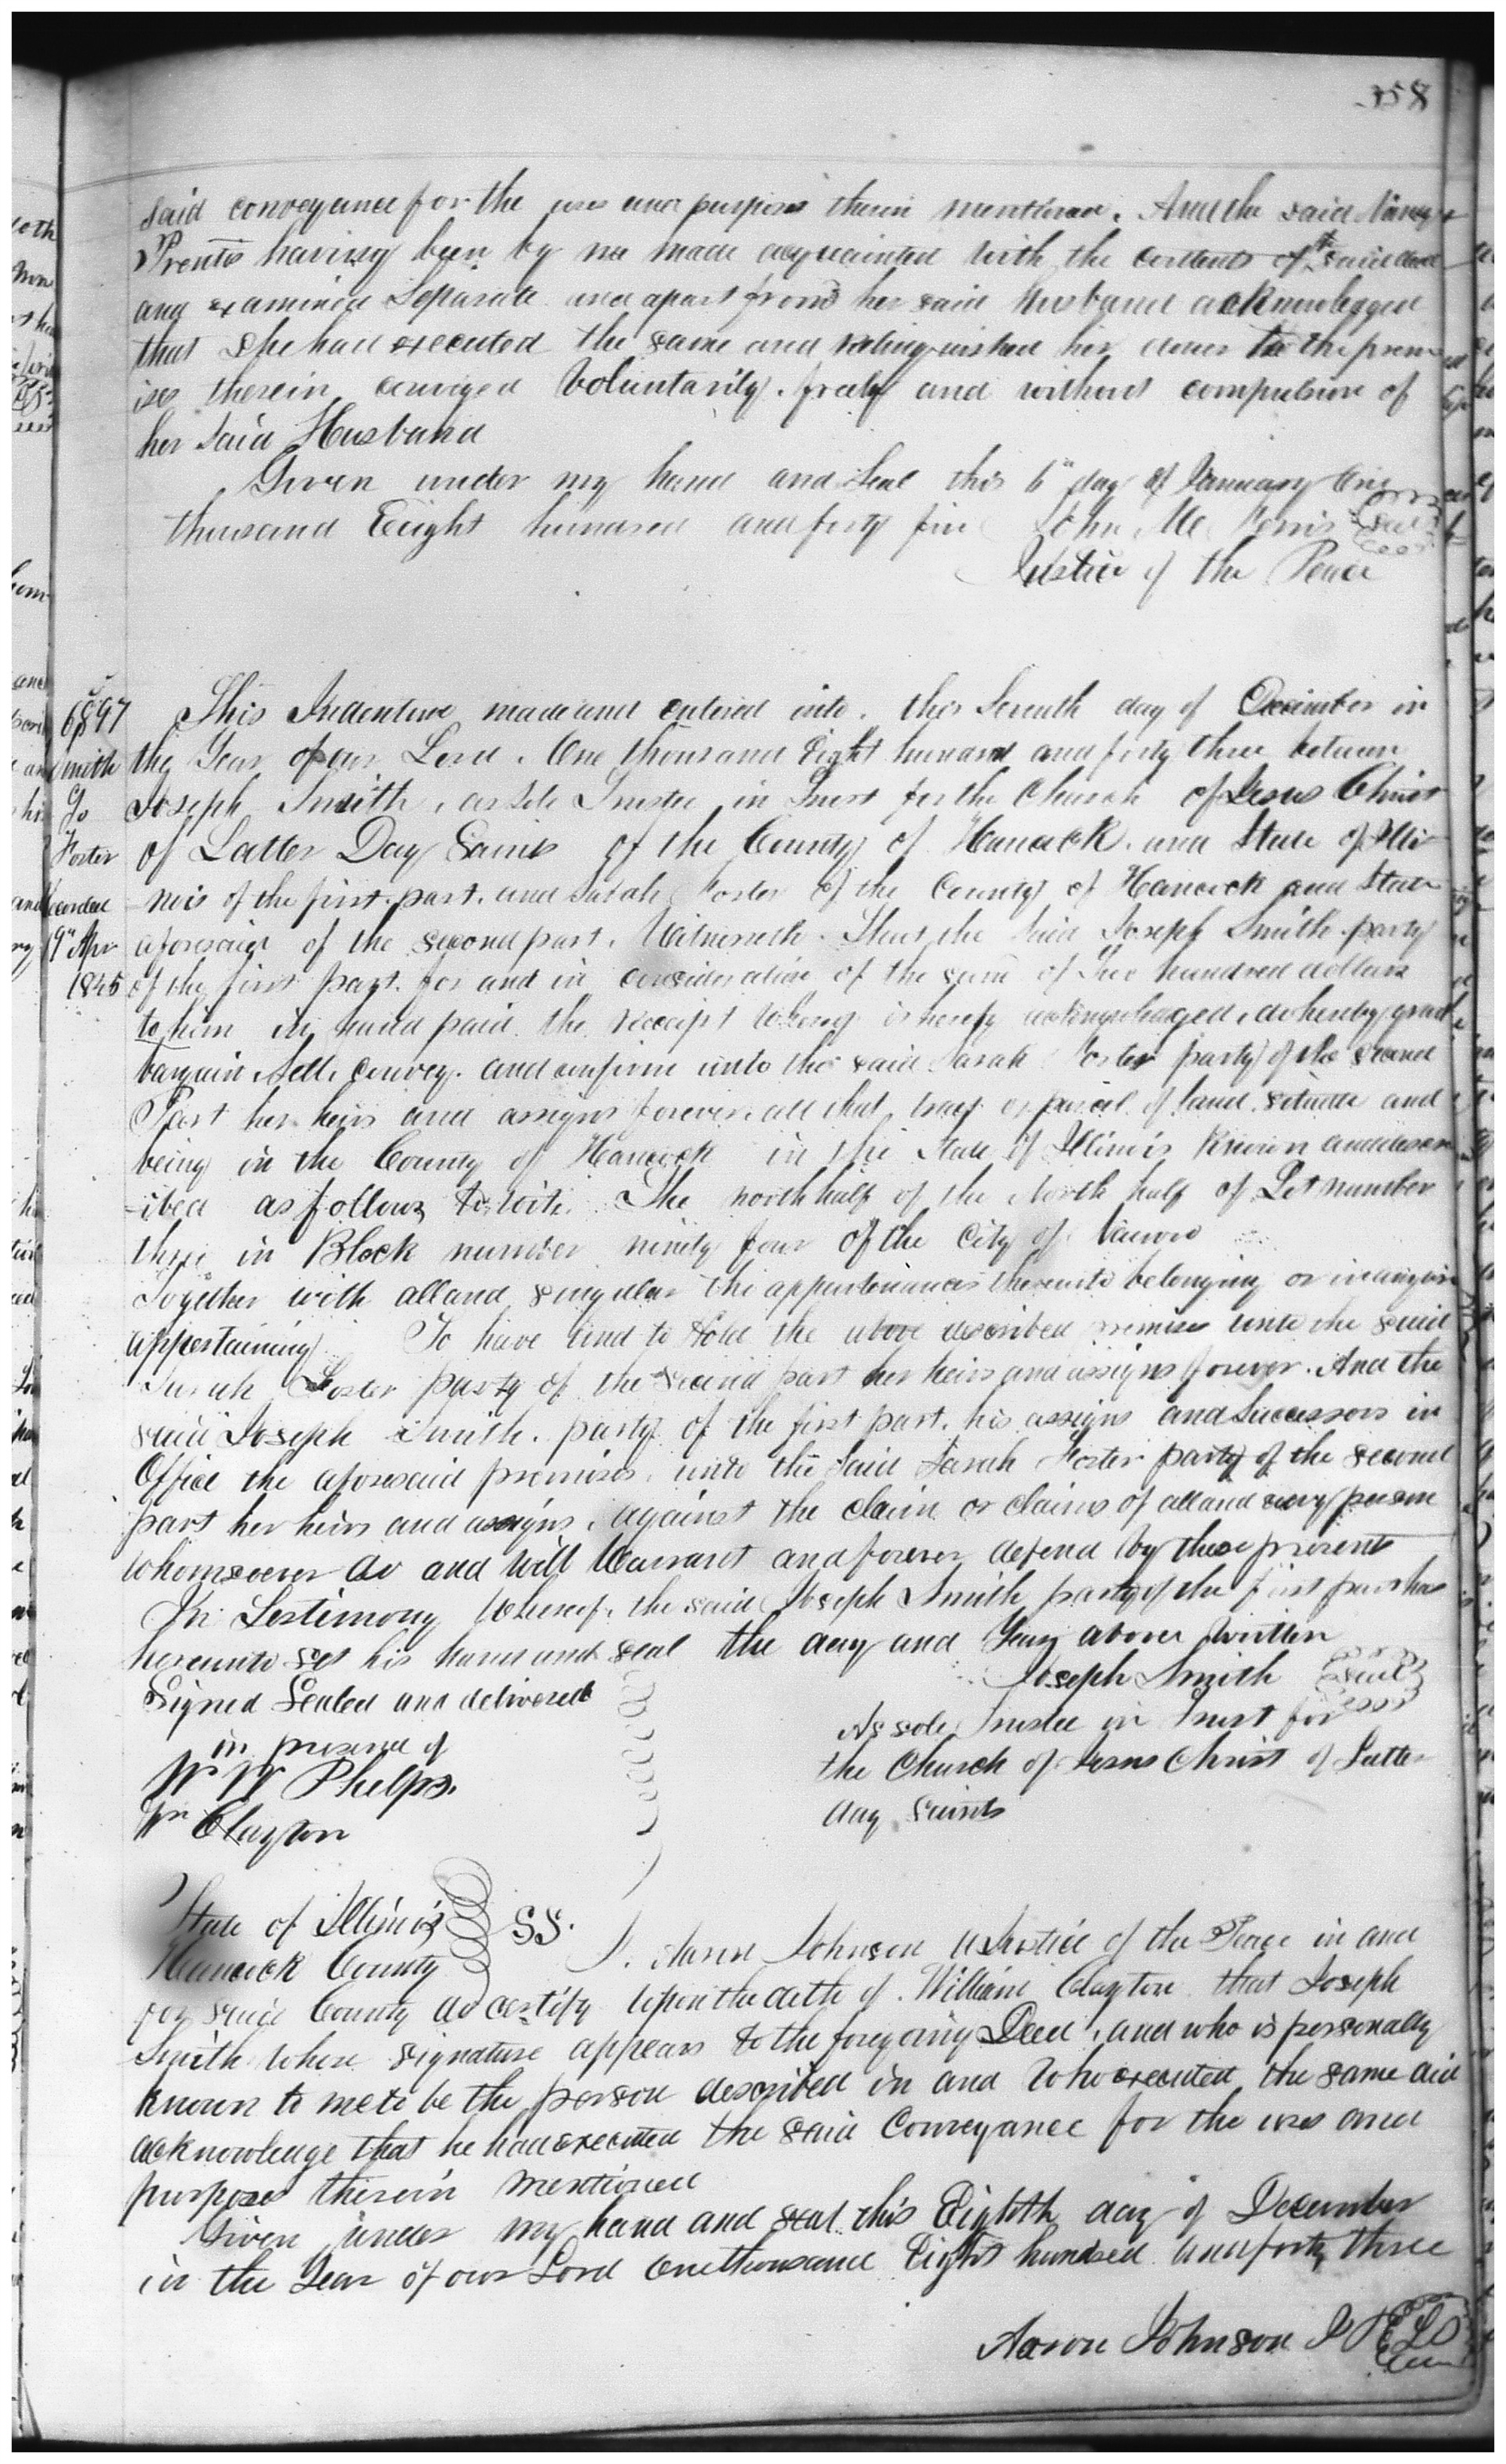 358
said conveyance for the uses and purposes therein mentioned. And the said Nancy
Prentis having been by me made acquainted with the contents of sd said deed
and examined Separate and apart from her said Husband acknowledged
that She had executed the same and relinquished her dower to the prem
ises therein conveyed Voluntarily. freely and without compulsion of
her said Husband
Given under my hand and Seal this 6th day of January One
thousand Eight hundred and forty five John Mc
Seal
Justice of the Peace
6897
Smith
To
Foster
Recorded
19th Apr
1845
This Indenture made and entered into. this Seventh day of December in
the Year of our Lord. One thousand Eight hundred and forty three between
Joseph Smith, as Sole Trustee in Trust for the Church of Jesus Christ
of Latter Day Saints of the County of Hancock. and State of Illi
nois of the first. part. and Sarah Foster of the County of Hancock and State
aforesaid of the second part. Witnesseth. That the Said Joseph Smith. party
of the first part. for and in consideration of the sum of Two hundred dollars
to him in hand paid. the receipt whereof is hereby acknowledged, do hereby grant
bargain. Sell. convey. and confirm unto the said Sarah Foster party of the second
Part her heirs and assigns forever. all that tract or parcel of land. situate and
being in the County of Hancock in the State of Illinois Known and descr
-ibed as follows to wit. The north half of the North half of Lot number
three in Block number ninety four of the City of Nauvoo
Together with all and singular the appurtenances thereunto belonging or in anywise
appertaining To have and to Hold the above described premises unto the said
Sarah Foster party of the second part her heirs and assigns forever. And the
said Joseph Smith. party of the first part. his assigns and Successors in
Office the aforesaid premises. unto the Said Sarah Foster party of the second
part her heirs and assigns. against the claim or claims of all and every person
whomsoever do and will Warrant and forever defend by these presents
In Testimony Whereof. the said Joseph Smith party of the first part has
hereunto set his hand and seal the day and Year above written
Signed Sealed and delivered
in presence of
W. W. Phelps.
Wm Clayton
Joseph Smith Seal
As sole Trustee in Trust for
the Church of Jesus Christ of Latter
day saints
State of Illinois
Hancock County
SS.
I. Aaron Johnson a Justice of the Peace in and
for said County do certify upon the oath of. William Clayton that Joseph
Smith whose signature appears to the foregoing Deed, and who is personally
known to me to be the person described in and who executed the same did
acknowledge that he had executed the said Conveyance for the uses and
purposes therein mentioned
Given under my hand and seal this Eighth day of December
in the Year of our Lord one thousand Eight hundred and forty three
Aaron Johnson J P LS